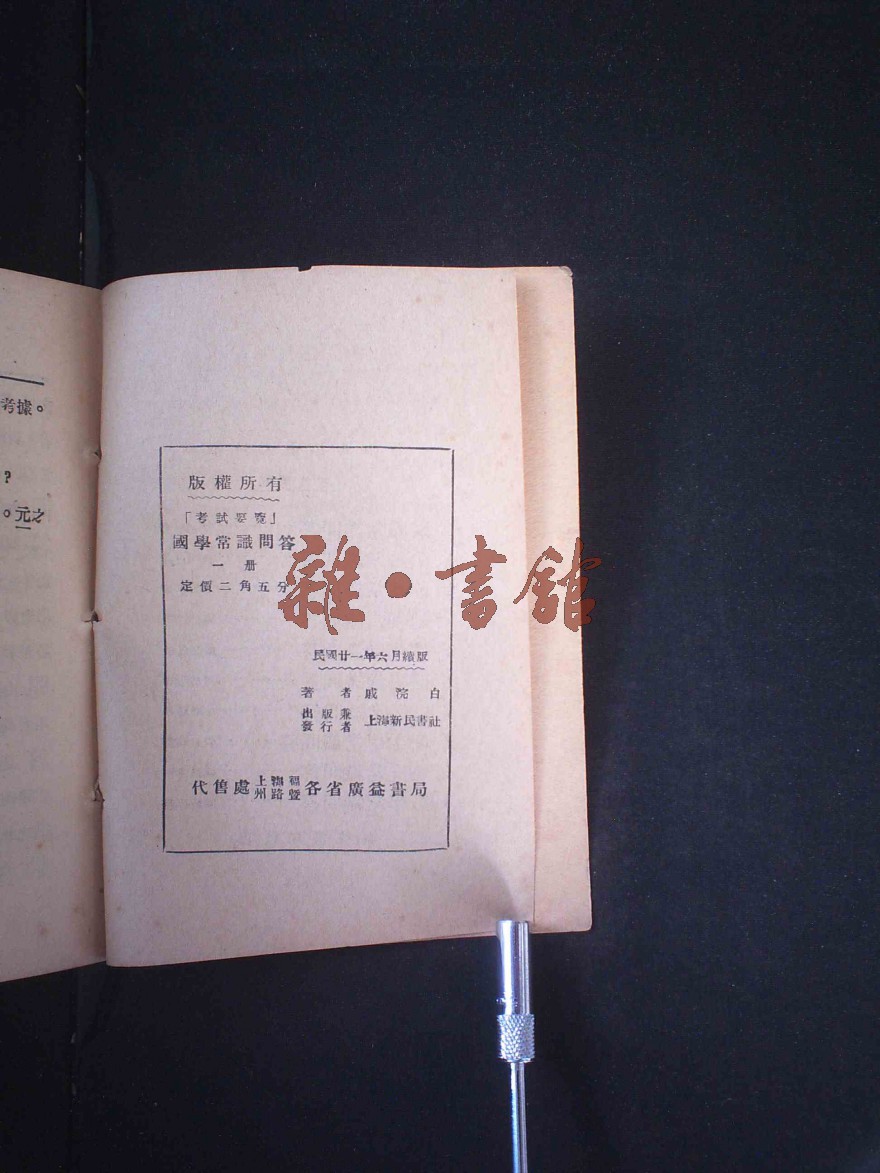 考據。
?
。元之
版權所有
「考試要覽」
國學常識問答
一册
定價二角五分
雜•書館
民國廿一年六月續版
著者 戚浣白
出版兼
發行者 上海新民書社
代售處 上海福
州路暨 各省廣益書局